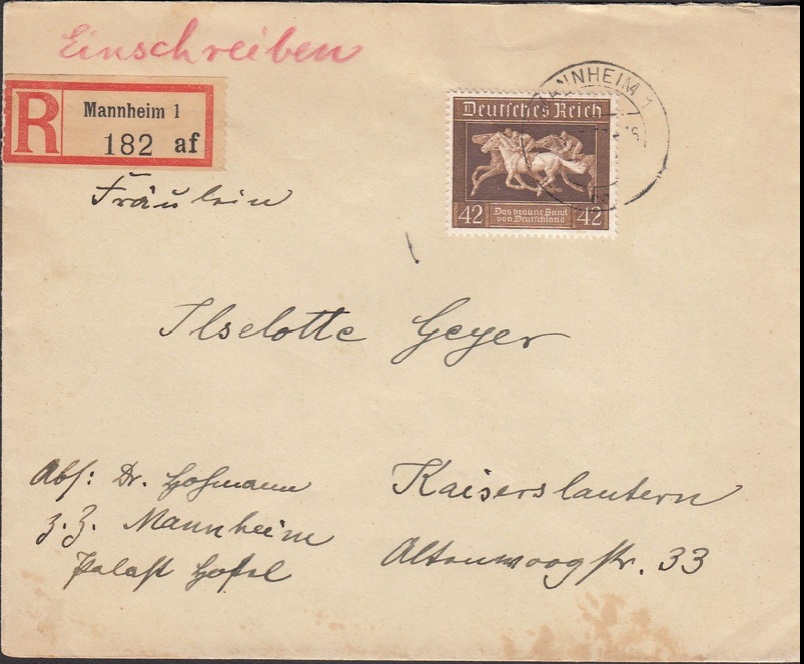 Einschreiben
R
Mannheim 1
182 af
MANNHEIM 1
Deutsches Reich
42 Das braune Band 42
von Deutschland
Fräulein
Ilselotte Geyer
Kaiserslautern
Altenwoogstr. 33
Abs: Dr. Hofmann
z. Z. Mannheim
Palast Hotel